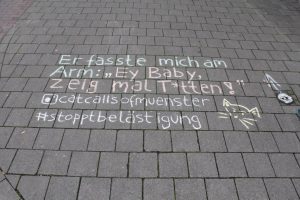 "Er fasste mich am
Arm: „Ey Baby,
zeig mal T*tten!"
@catcallsofmuenster
#stopptbelästigung